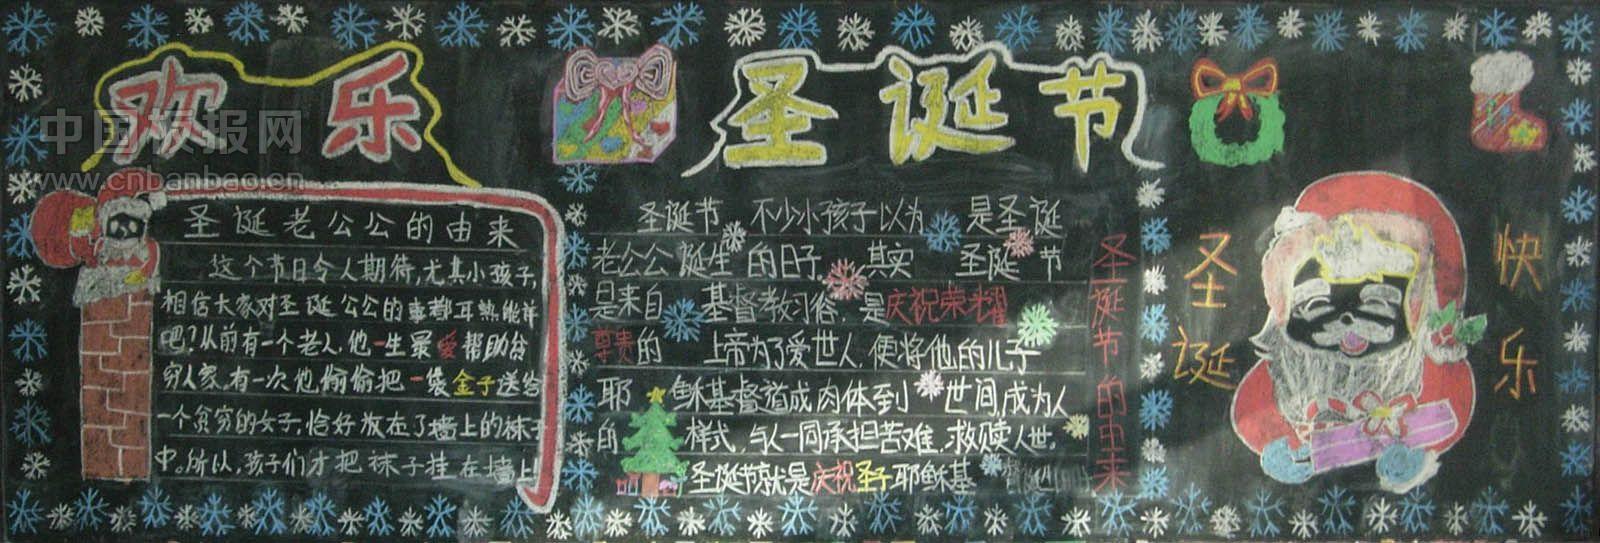 欢乐
圣诞节
中国板报网
www.cnbanbao.cn
圣诞老公公的由来
这个节日令人期待,尤其小孩子,
相信大家对圣诞公公的事都耳熟能详
吧?从前有一个老人,他一生最爱帮助贫
穷人家,有一次他偷偷把一袋金子送给
一个贫穷的女子,恰好放在了墙上的袜子
中。所以,孩子们才把袜子挂在墙上
圣诞节 不少小孩子以为 是圣诞
老公公诞生的日子。其实 圣诞节
是来自 基督教习俗,是庆祝荣耀
尊贵的 上帝为了爱世人,便将他的儿子
耶稣基督道成肉体到 世间,成为人
的 样式,与人一同承担苦难,救赎人世。
圣诞节就是庆祝圣子耶稣基
圣诞节的由来
圣诞
快乐